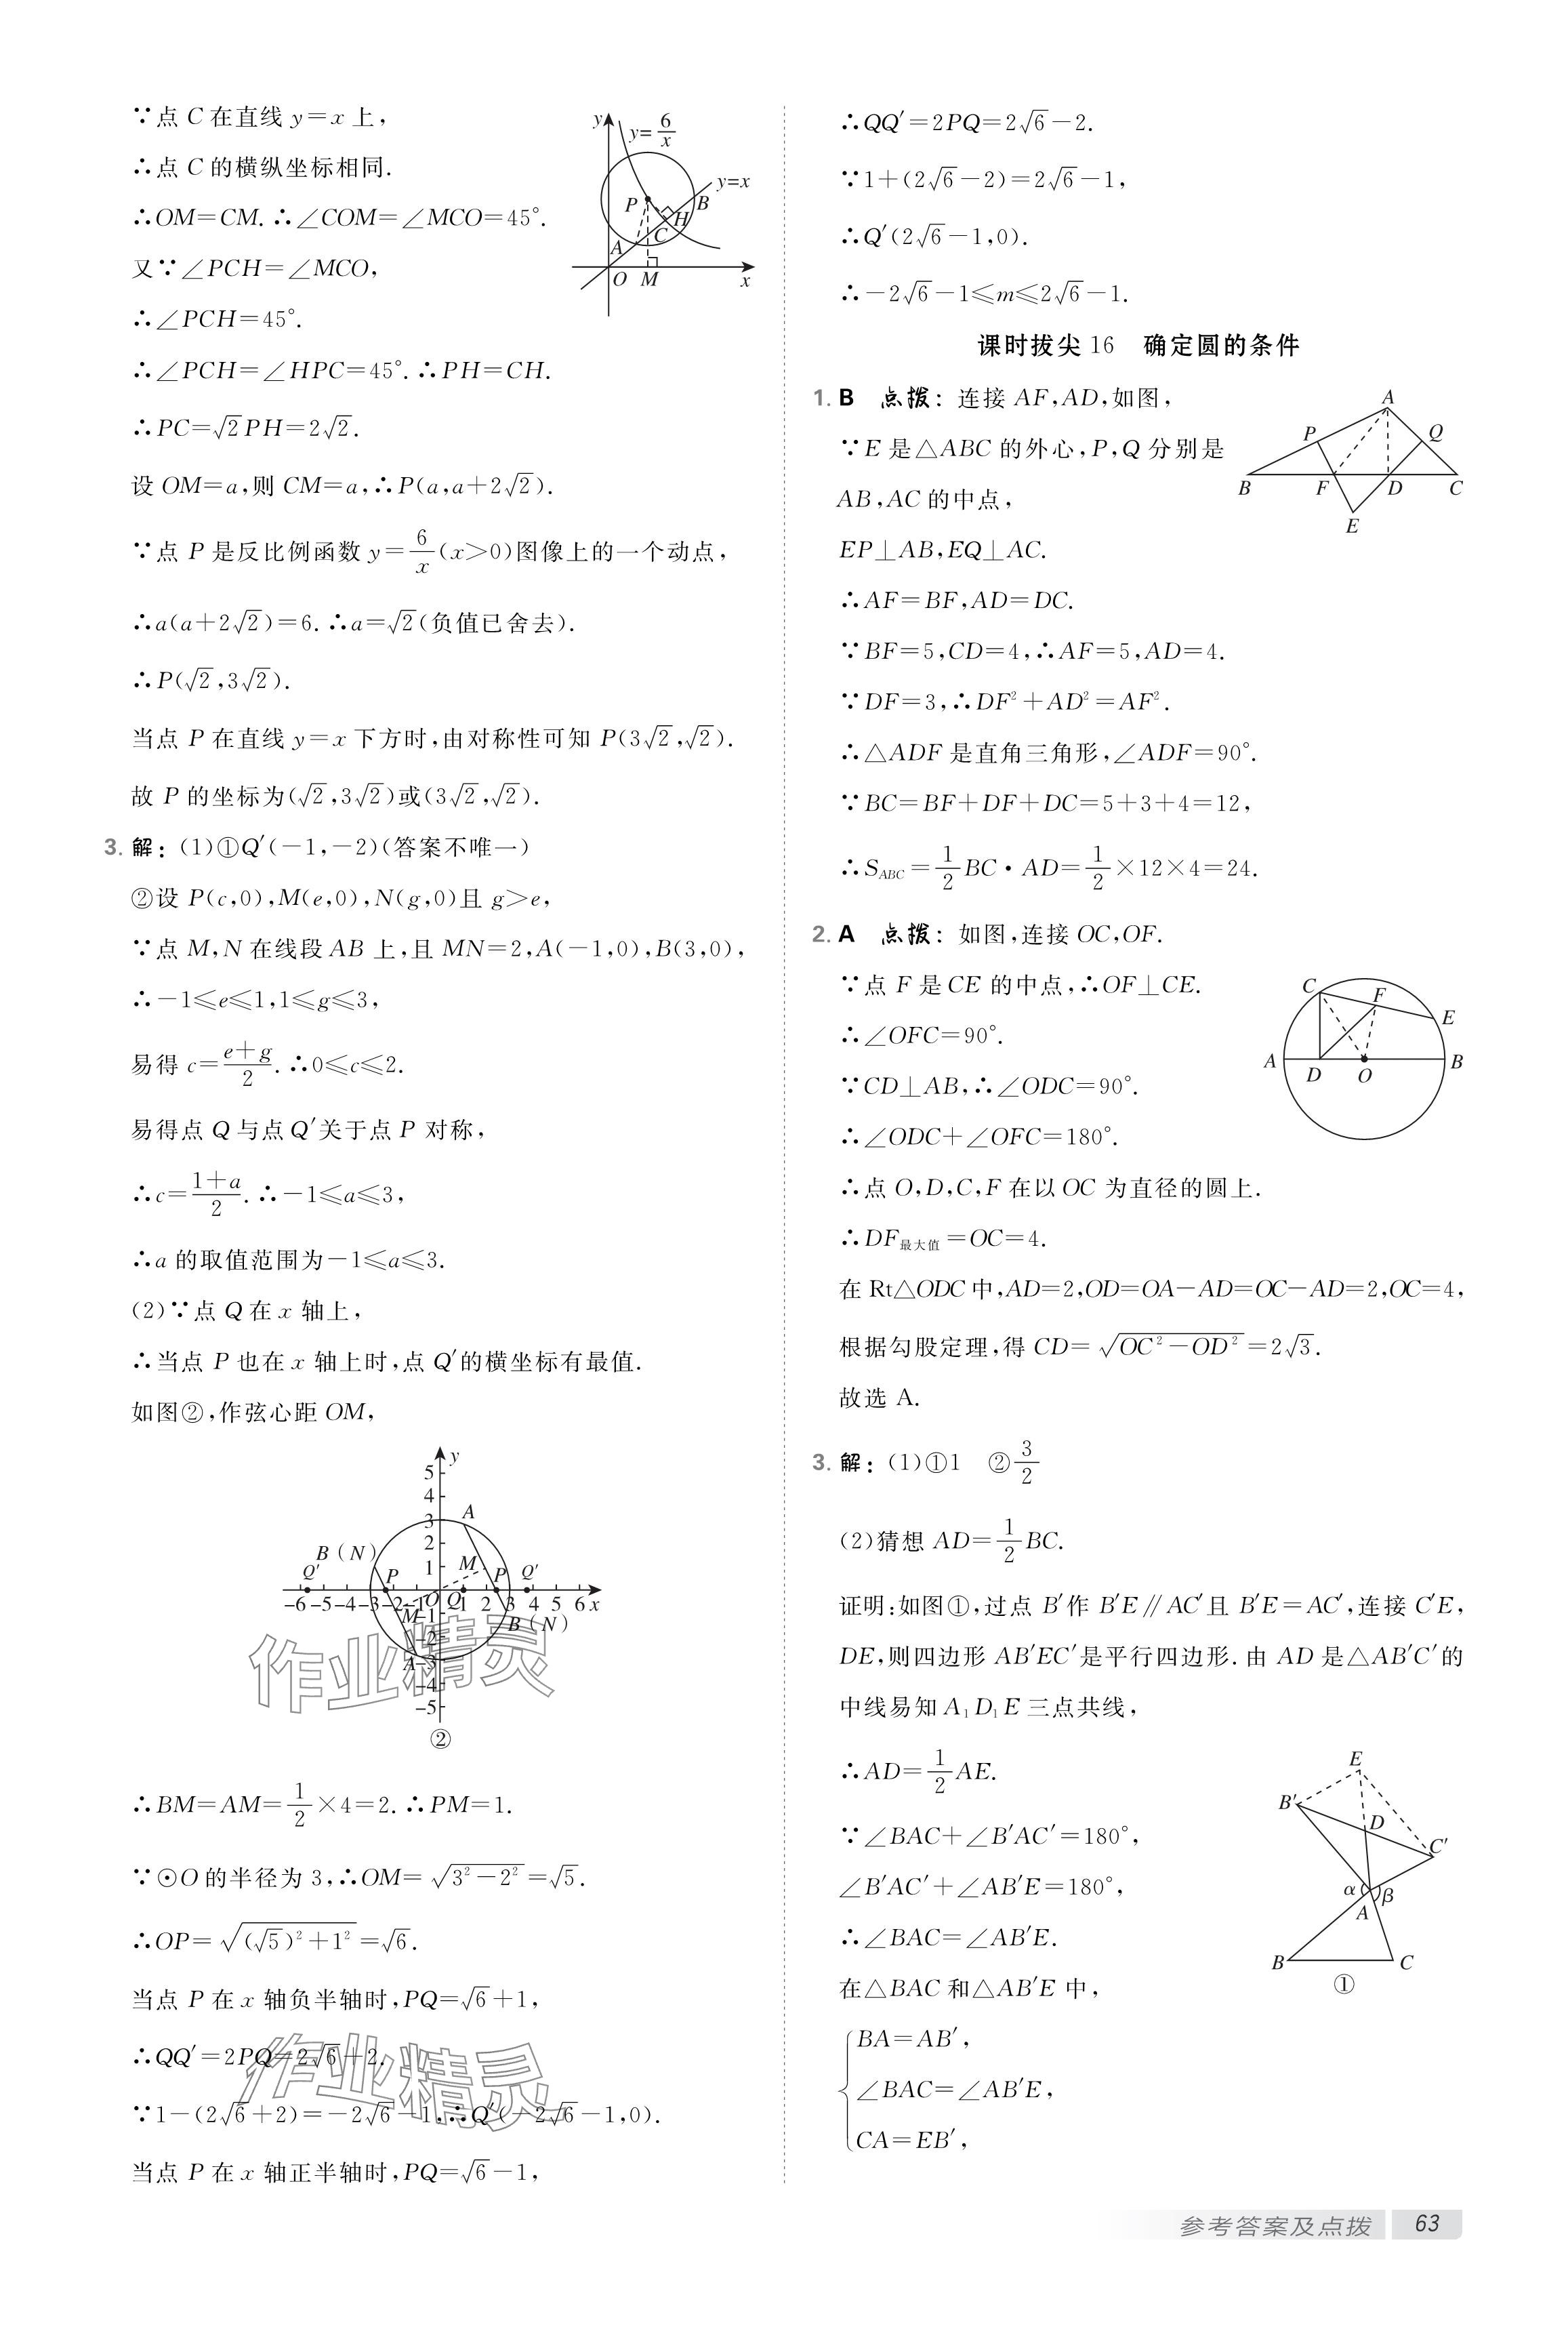 ∵点 C 在直线 y=x 上,
∴点 C 的横纵坐标相同.
∴OM=CM. ∴∠COM=∠MCO=45°.
又∵∠PCH=∠MCO,
∴∠PCH=45°.
∴∠PCH=∠HPC=45°. ∴PH=CH.
∴PC=√2PH=2√2.
设 OM=a,则 CM=a,∴P(a,a+2√2).
∵点 P 是反比例函数 y=6/x(x>0)图像上的一个动点,
∴a(a+2√2)=6. ∴a=√2(负值已舍去).
∴P(√2,3√2).
当点 P 在直线 y=x 下方时,由对称性可知 P(3√2,√2).
故 P 的坐标为(√2,3√2)或(3√2,√2).
y
y=6/x
y=x
P
B
H
C
A
O
M
x
3. 解:(1)①Q′(-1,-2)(答案不唯一)
②设 P(c,0),M(e,0),N(g,0)且 g>e,
∵点 M,N 在线段 AB 上,且 MN=2,A(-1,0),B(3,0),
∴-1≤e≤1,1≤g≤3,
易得 c=(e+g)/2. ∴0≤c≤2.
易得点 Q 与点 Q′关于点 P 对称,
∴c=(1+a)/2. ∴-1≤a≤3,
∴a 的取值范围为-1≤a≤3.
(2)∵点 Q 在 x 轴上,
∴当点 P 也在 x 轴上时,点 Q′的横坐标有最值.
如图②,作弦心距 OM,
y
5
4
3
2
1
A
B(N)
M
Q′ P P Q′
-6 -5 -4 -3 -2 -1 O Q 1 2 3 4 5 6 x
M
-1
B(N)
-2
A -3
-4
-5
②
作业精灵
∴BM=AM=1/2×4=2. ∴PM=1.
∵⊙O 的半径为 3,∴OM=√(3²-2²)=√5.
∴OP=√((√5)²+1²)=√6.
当点 P 在 x 轴负半轴时,PQ=√6+1,
∴QQ′=2PQ=2√6+2.
∵1-(2√6+2)=-2√6-1,∴Q′(-2√6-1,0).
当点 P 在 x 轴正半轴时,PQ=√6-1,
作业精灵
∴QQ′=2PQ=2√6-2.
∵1+(2√6-2)=2√6-1,
∴Q′(2√6-1,0).
∴-2√6-1≤m≤2√6-1.
课时拔尖 16 确定圆的条件
1. B 点拨:连接 AF,AD,如图,
∵E 是△ABC 的外心,P,Q 分别是
AB,AC 的中点,
EP⊥AB,EQ⊥AC.
∴AF=BF,AD=DC.
∵BF=5,CD=4,∴AF=5,AD=4.
∵DF=3,∴DF²+AD²=AF².
∴△ADF 是直角三角形,∠ADF=90°.
∵BC=BF+DF+DC=5+3+4=12,
∴S_ABC=1/2BC·AD=1/2×12×4=24.
A
P Q
B F D C
E
2. A 点拨:如图,连接 OC,OF.
∵点 F 是 CE 的中点,∴OF⊥CE.
∴∠OFC=90°.
∵CD⊥AB,∴∠ODC=90°.
∴∠ODC+∠OFC=180°.
∴点 O,D,C,F 在以 OC 为直径的圆上.
∴DF最大值=OC=4.
在 Rt△ODC 中,AD=2,OD=OA-AD=OC-AD=2,OC=4,
根据勾股定理,得 CD=√(OC²-OD²)=2√3.
故选 A.
C F
E
A D O B
3. 解:(1)①1 ②3/2
(2)猜想 AD=1/2BC.
证明:如图①,过点 B′作 B′E∥AC′且 B′E=AC′,连接 C′E,
DE,则四边形 AB′EC′是平行四边形. 由 AD 是△AB′C′的
中线易知 A₁D₁E 三点共线,
∴AD=1/2AE.
∵∠BAC+∠B′AC′=180°,
∠B′AC′+∠AB′E=180°,
∴∠BAC=∠AB′E.
在△BAC 和△AB′E 中,
BA=AB′,
∠BAC=∠AB′E,
CA=EB′,
E
B′
D
C′
α β
A
B C
①
参考答案及点拨 63